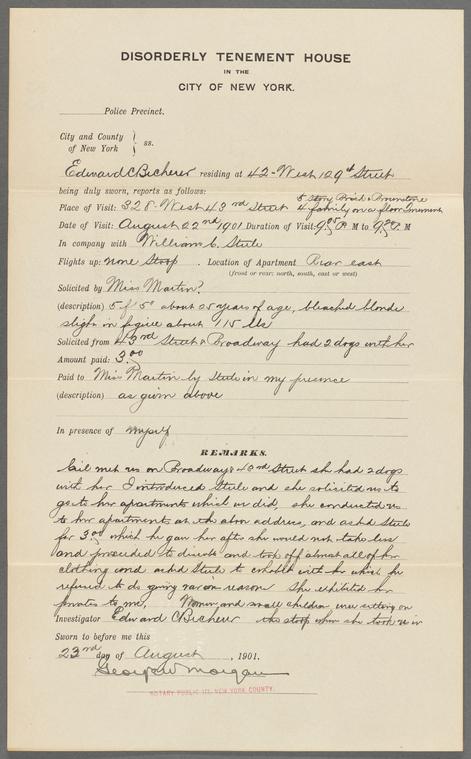 DISORDERLY TENEMENT HOUSE
IN THE
CITY OF NEW YORK.
Police Precinct.
City and County
of New York } ss.
Edward C Becherer residing at 42 West 129th Street
being duly sworn, reports as follows:
5 Story Brick & Brownstone
Place of Visit: 328 West 43rd Street 4 family on a floor
Date of Visit: August 22nd 1901. Duration of Visit: 9.05 P. M to 9.20 P. M
In company with William C. Steele
Flights up: none Stoop . Location of Apartment Rear east
(front or rear: north, south, east or west)
Solicited by Miss Martin?
(description) 5 f 5" about 25 years of age, bleached blonde
slight in figure about 115 lbs
Solicited from 42nd Street & Broadway had 2 dogs with her
Amount paid: 3.00
Paid to Miss Martin by Steele in my presence
(description) as given above
In presence of myself
REMARKS.
Girl met us on Broadway & 42nd Street she had 2 dogs
with her I introduced Steele and she solicited us to
go to her apartments which we did, she conducted us
to her apartments at the above address, and asked Steele
for 3.00 which he gave her after she would not take less
and proceeded to disrobe and took off almost all of her
clothing and asked Steele to cohabit with her which he
refused to do giving reason She exhibited her
privates to me, Women and small children were sitting on
Investigator Edward C Becherer the stoop when she took us in
Sworn to before me this
23rd day of August , 1901.
George W Morgan
NOTARY PUBLIC 111, NEW YORK COUNTY.